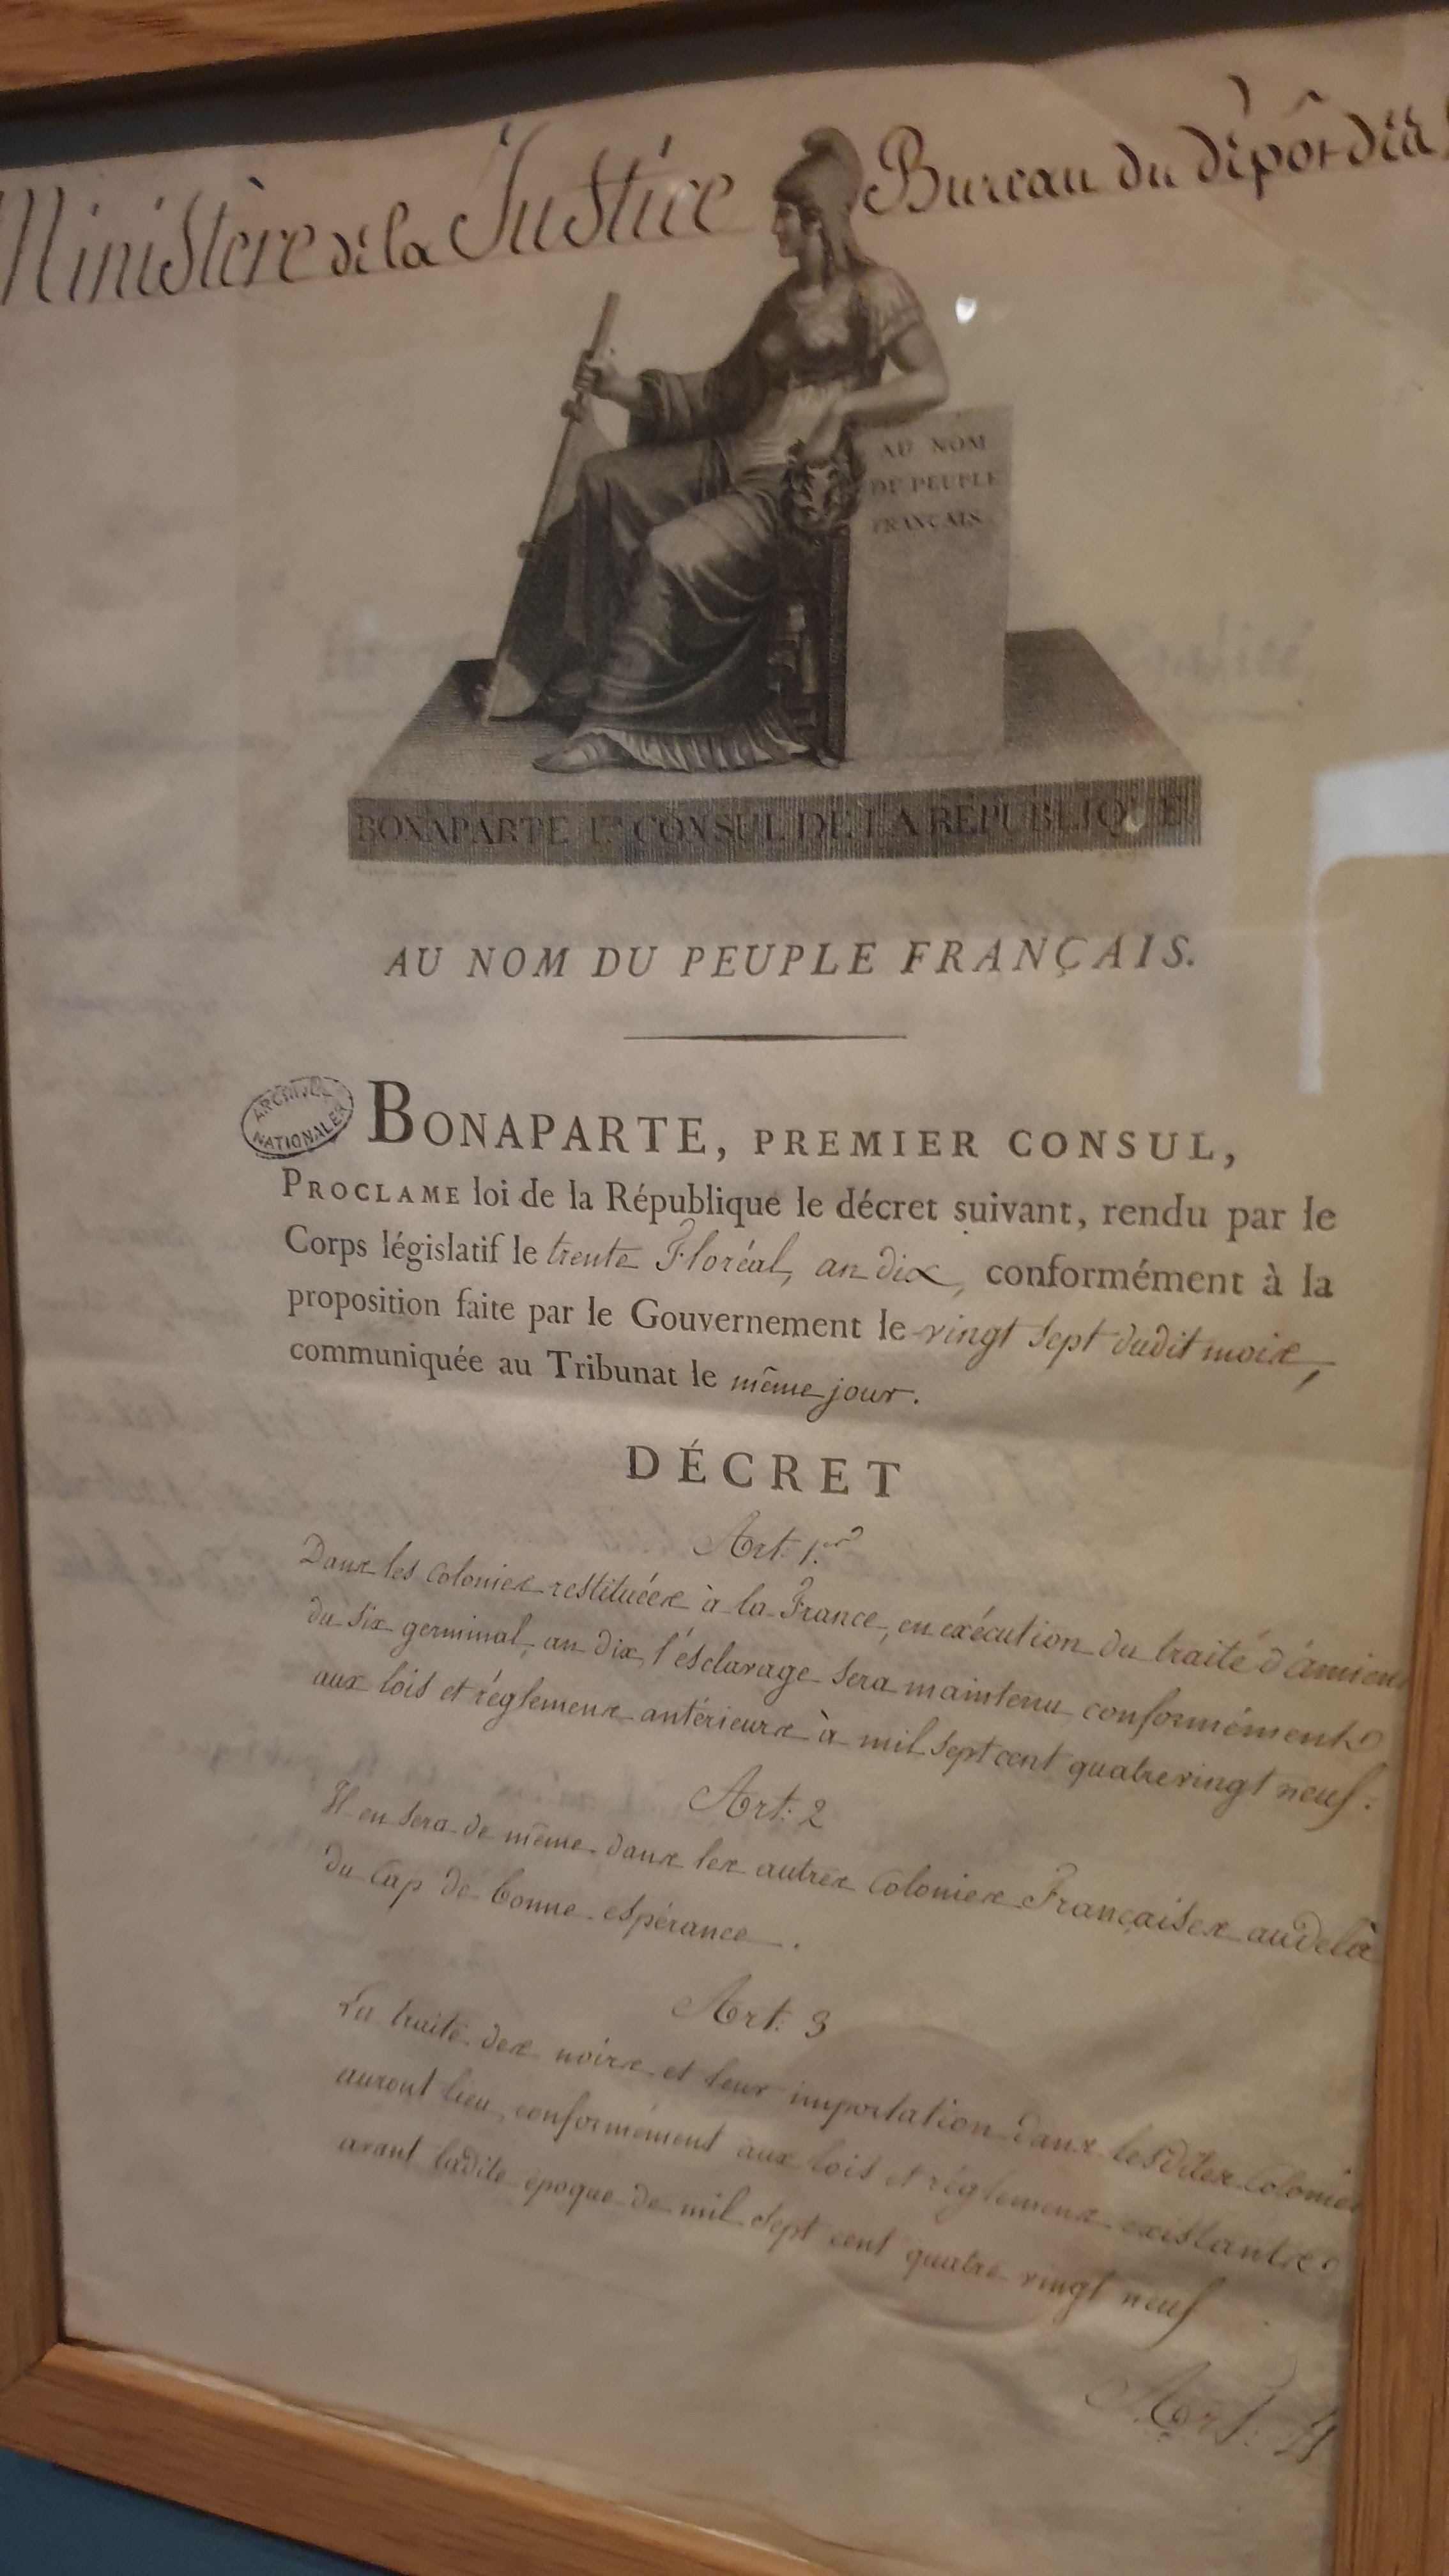 Ministère de la Justice Bureau du dépôt des
AU NOM
DU PEUPLE
FRANÇAIS.
BONAPARTE 1.er CONSUL DE LA RÉPUBLIQUE
AU NOM DU PEUPLE FRANÇAIS.
ARCHIVES
NATIONALES
BONAPARTE, PREMIER CONSUL,
PROCLAME loi de la République le décret suivant, rendu par le
Corps législatif le trente Floréal, an dix, conformément à la
proposition faite par le Gouvernement le vingt sept dudit mois,
communiquée au Tribunat le même jour.
DÉCRET
Art: 1.er
Dans les colonies restituées à la France, en exécution du traité d'amiens
du six germinal, an dix, l'esclavage sera maintenu conformément
aux lois et réglemens antérieurs à mil sept cent quatrevingt neuf.
Art: 2
Il en sera de même dans les autres colonies Françaises audelà
du Cap de bonne espérance.
Art: 3
La traite des noirs et leur importation dans lesdites Colonies
auront lieu, conformément aux lois et réglemens existants
avant ladite époque de mil sept cent quatre vingt neuf
Art: 4